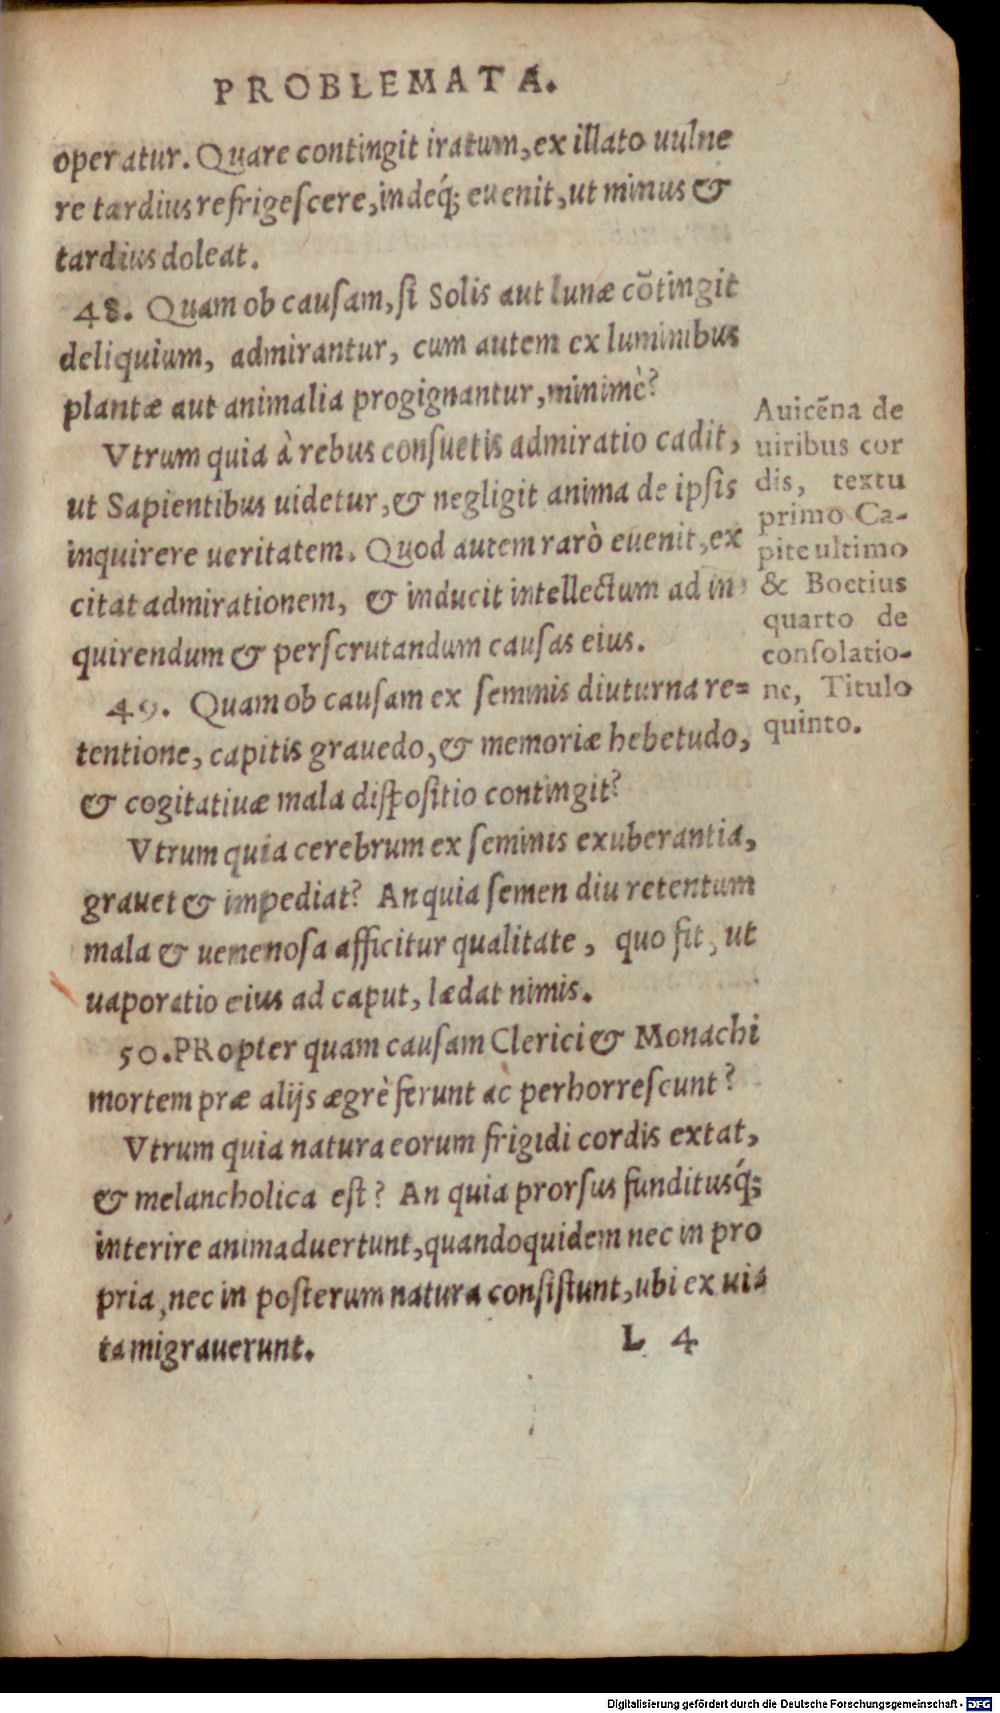 PROBLEMATA.
operatur. Quare contingit iratum, ex illato uulne
re tardius refrigeſcere, indeq́; euenit, ut minus &
tardius doleat.
48. Quam ob cauſam, ſi Solis aut lunæ cõtingit
deliquium, admirantur, cum autem ex luminibus
plantæ aut animalia progignantur, minimè?
Vtrum quia à rebus conſuetis admiratio cadit,
ut Sapientibus uidetur, & negligit anima de ipſis
inquirere ueritatem. Quod autem rarò euenit, ex
citat admirationem, & inducit intellectum ad in
quirendum & perſcrutandum cauſas eius.
49. Quam ob cauſam ex ſeminis diuturna re=
tentione, capitis grauedo, & memoriæ hebetudo,
& cogitatiuæ mala diſpoſitio contingit?
Vtrum quia cerebrum ex ſeminis exuberantia,
grauet & impediat? An quia ſemen diu retentum
mala & uenenoſa afficitur qualitate, quo fit, ut
uaporatio eius ad caput, lædat nimis.
50. PRopter quam cauſam Clerici & Monachi
mortem præ alijs ægrè ferunt ac perhorreſcunt?
Vtrum quia natura eorum frigidi cordis extat,
& melancholica eſt? An quia prorſus funditusq́;
interire animaduertunt, quandoquidem nec in pro
pria, nec in poſterum natura conſiſtunt, ubi ex ui=
ta migrauerunt.
L 4
Auicẽna de
uiribus cor
dis, textu
primo Ca-
pite ultimo
& Boetius
quarto de
conſolatio-
ne, Titulo
quinto.
Digitalisierung gefördert durch die Deutsche Forschungsgemeinschaft - DFG